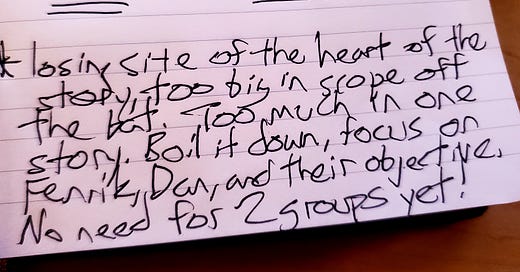 * losing site of the heart of the
story, too big in scope off
the bat. Too much in one
story. Boil it down, focus on
Fenrik, Dan, and their objective.
No need for 2 groups yet!